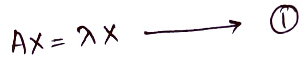 AX = λX ⟶ ①